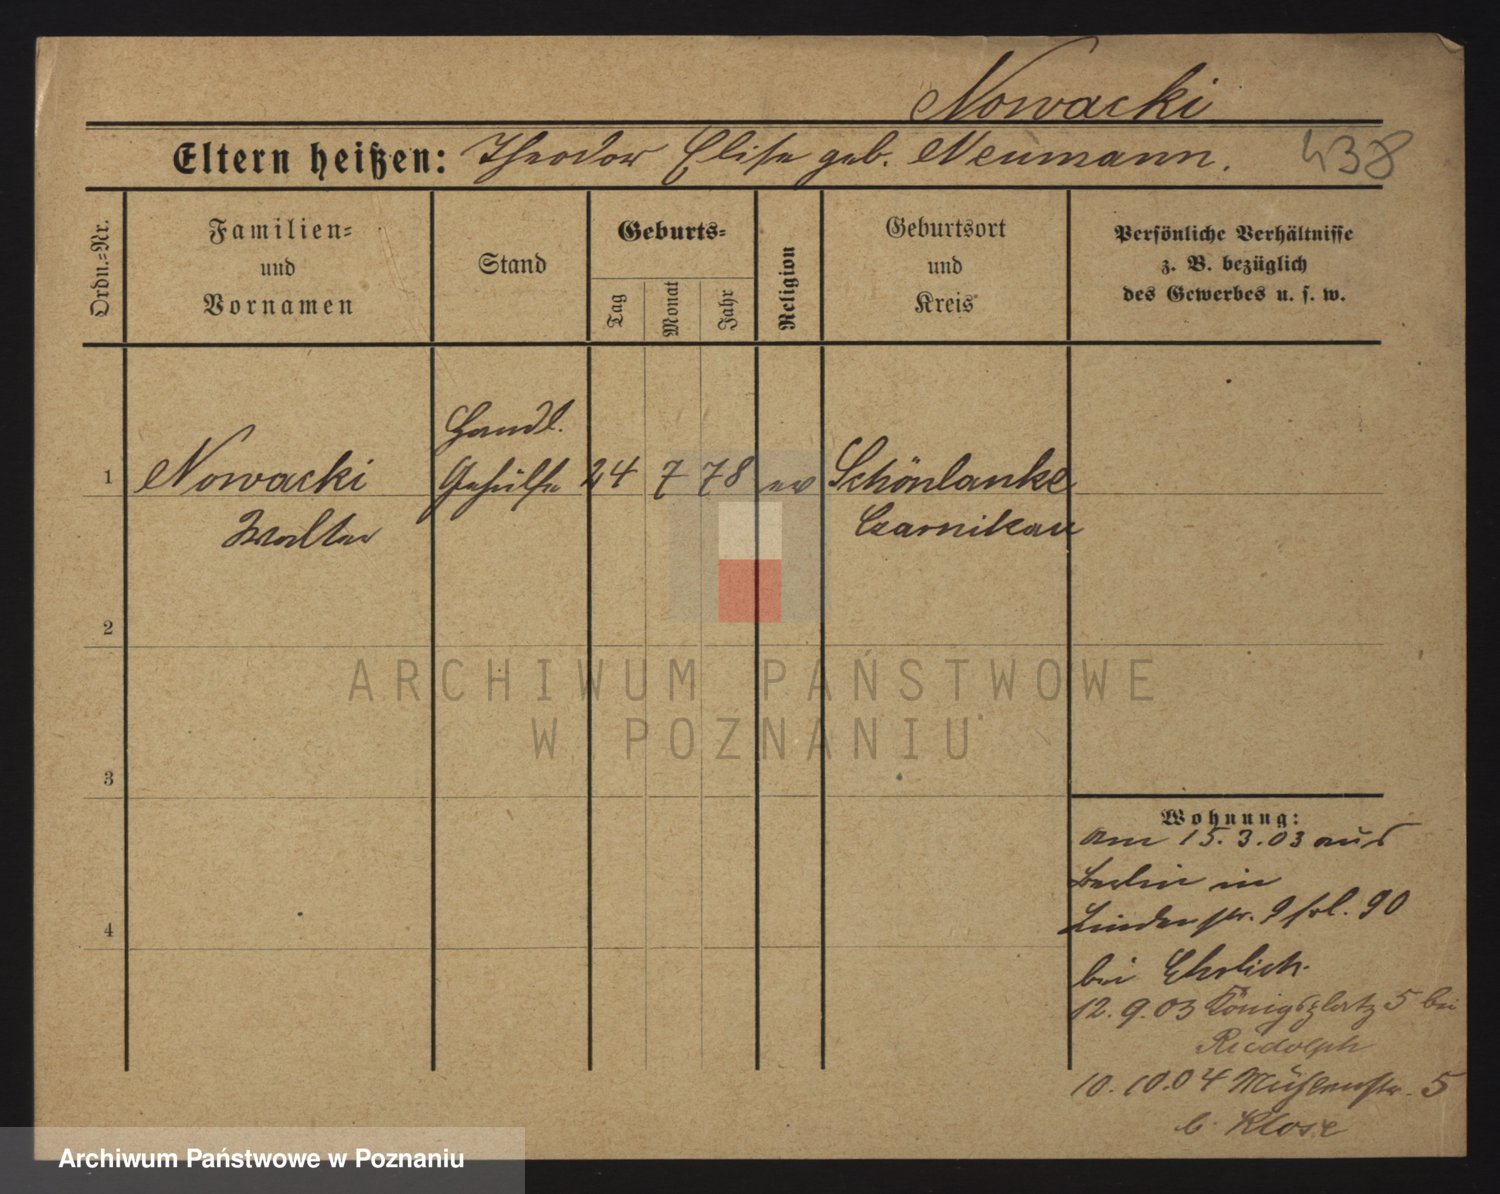 Nowacki
Eltern heißen: Theodor Elise geb. Neumann. 438
Ordn.=Nr.
Familien=
und
Vornamen
Stand
Geburts=
Tag
Monat
Jahr
Religion
Geburtsort
und
Kreis
Persönliche Verhältnisse
z. B. bezüglich
des Gewerbes u. s. w.
Handl.
1 Nowacki Gehülfe 24 7 78 ev Schönlanke
Walter Czarnikau
2
ARCHIWUM PAŃSTWOWE
W POZNANIU
3
Wohnung:
am 15.3.03 aus
Berlin in
4 Lindenstr. 9 fol. 90
bei Ehrlich.
12.9.03 Königsplatz 5 bei
Rudolph
10.10.04 Mühlenstr. 5
b. Klose
Archiwum Państwowe w Poznaniu